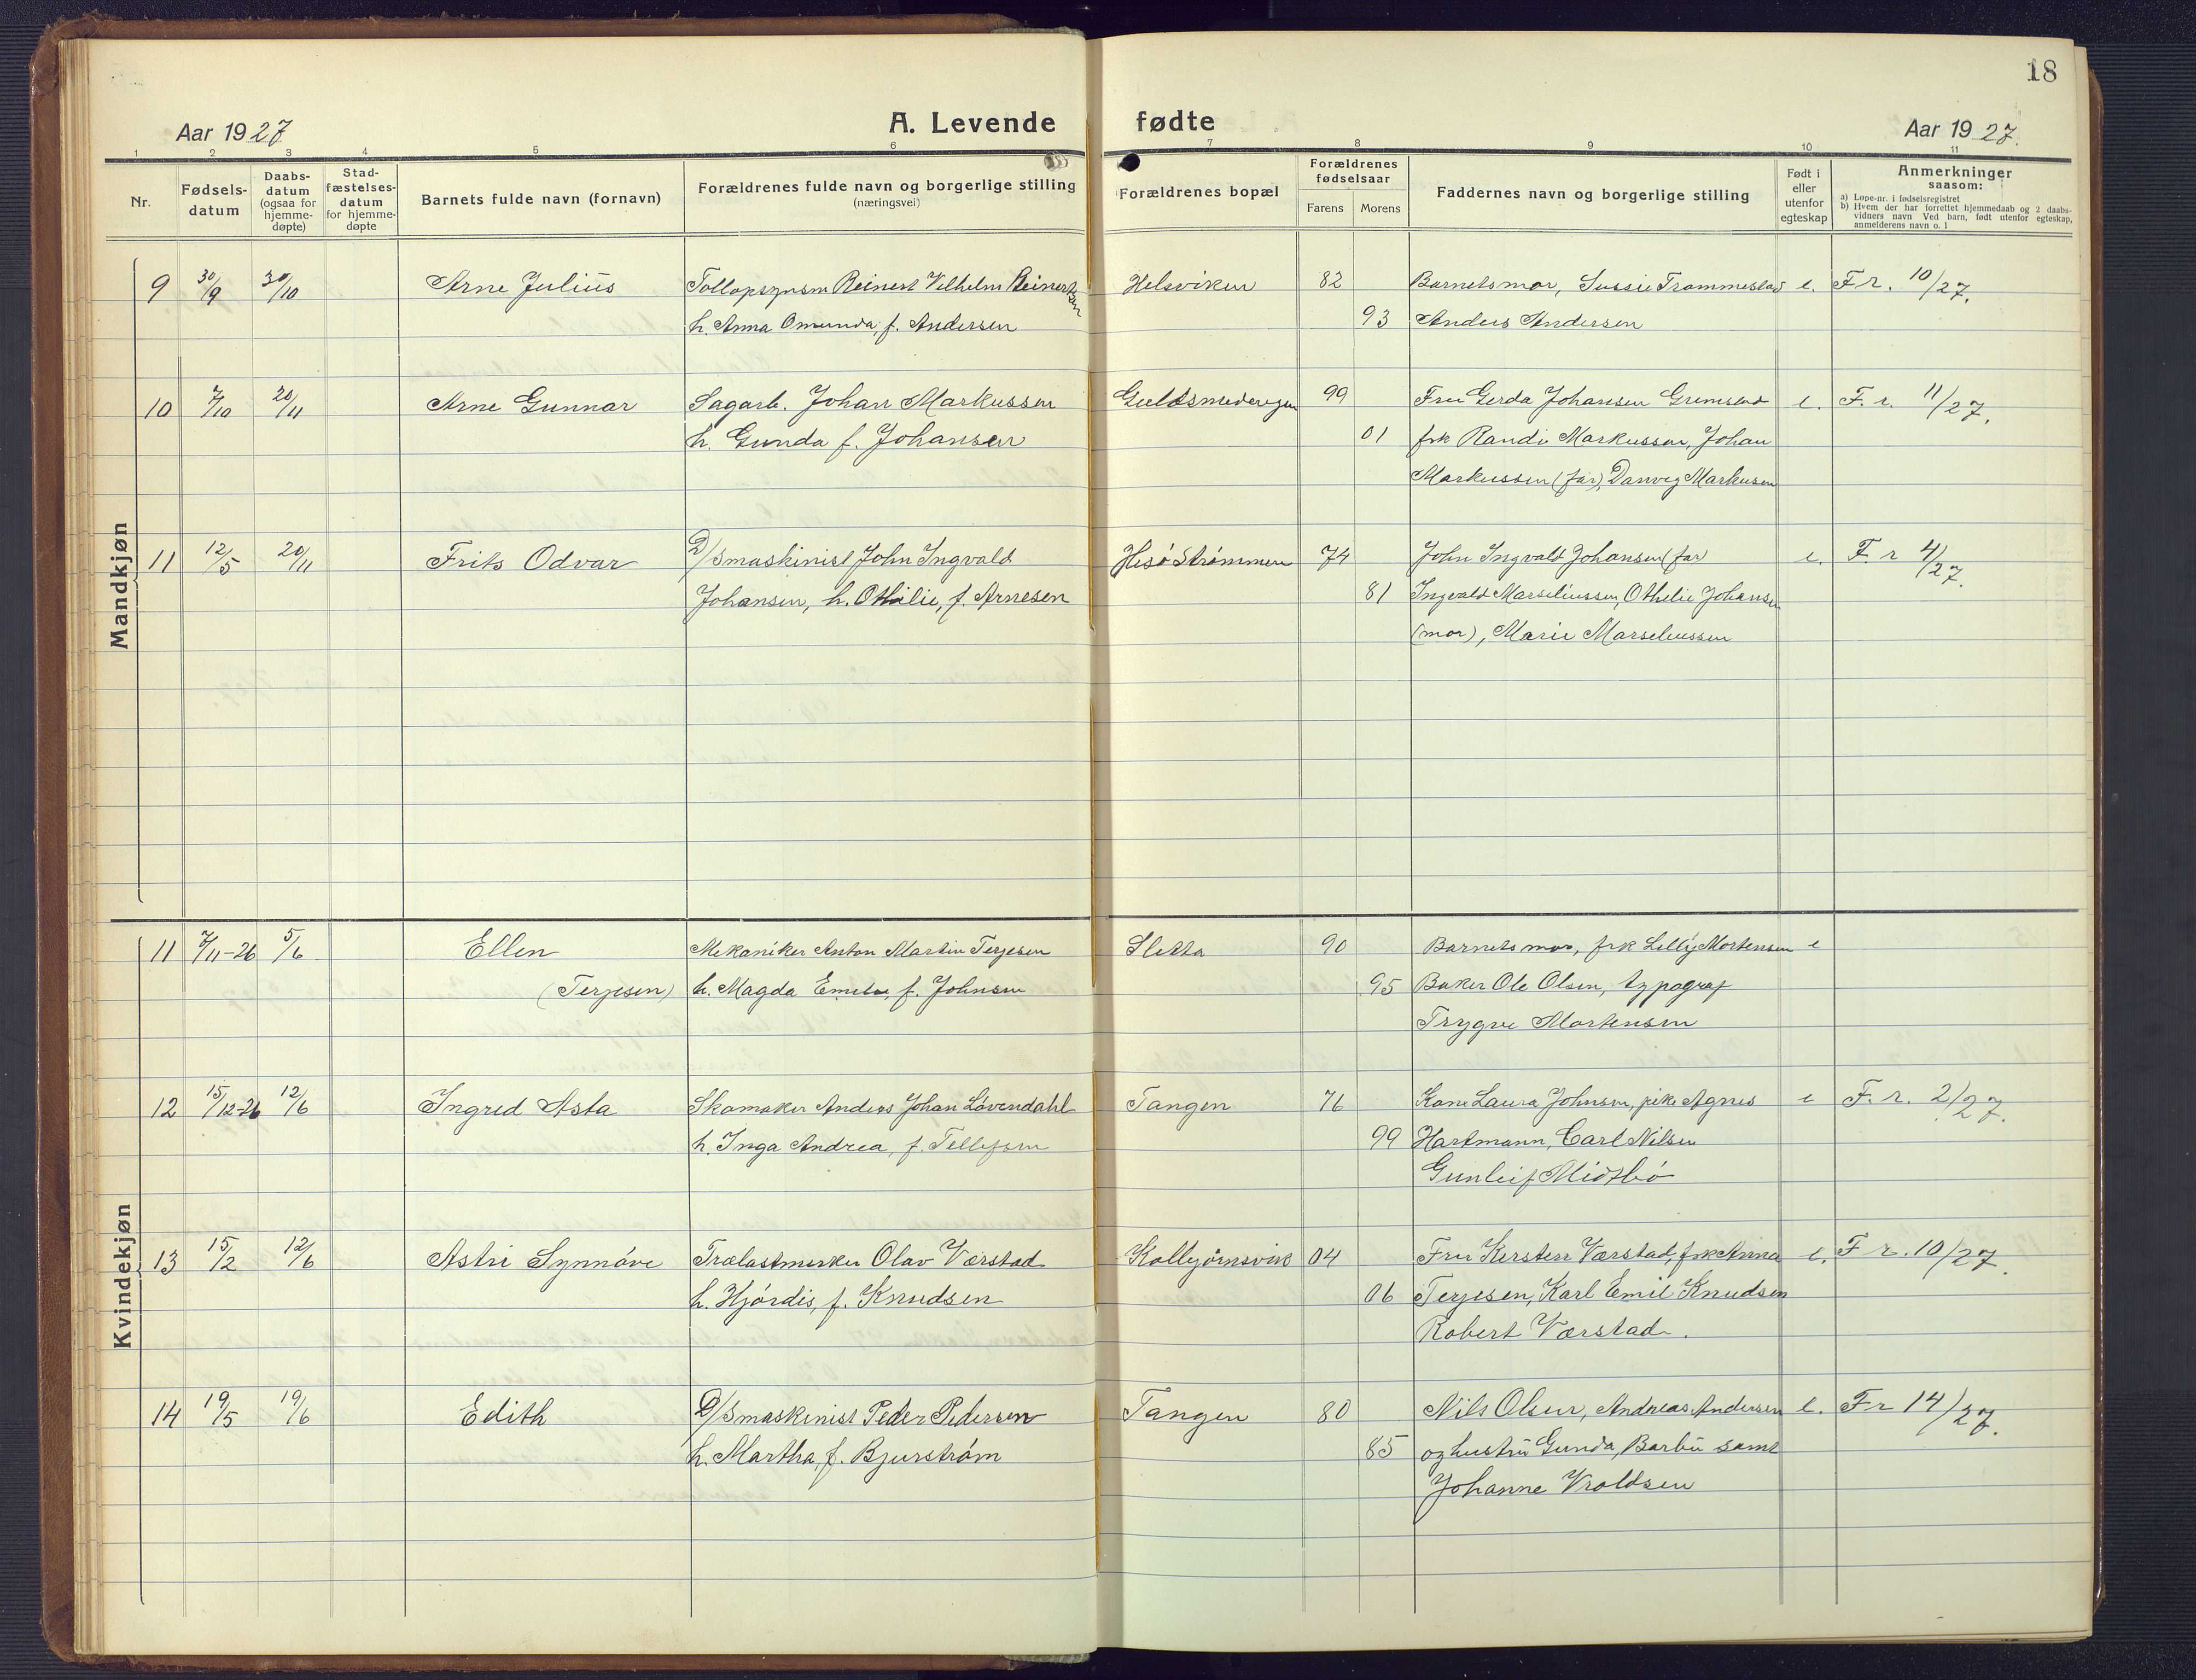 18
Aar 1927
A. Levende fødte
Aar 1927.
1 2 3 4 5 6 7 8 9 10 11
Nr.
Fødsels-
datum
Daabs-
datum
(ogsaa for
hjemme-
døpte)
Stad-
fæstelses-
datum
for hjemme-
døpte
Barnets fulde navn (fornavn)
Forældrenes fulde navn og borgerlige stilling
(næringsvei)
Forældrenes bopæl
Forældrenes
fødselsaar
Farens Morens
Faddernes navn og borgerlige stilling
Født i
eller
utenfor
egteskap
Anmerkninger
saasom:
a) Løpe-nr. i fødselsregistret
b) Hvem der har forrettet hjemmedaab og 2 daabs-
vidners navn Ved barn, født utenfor egteskap,
anmelderens navn o. l
Mandkjøn
9 30/9 30/10 Arne Julius Tollopsynsm Reinert Vilhelm Reinertsen Helsviken 82 Barnets mor, Sussie Trommestad e. F r. 10/27.
h. Anna Omunda, f. Andersen 93 Anders Andersen
10 7/10 20/11 Arne Gunnar Sagarb. Johan Markussen Guldsmedengen 99 Fru Gerda Johansen Grimstad e. F. r. 11/27.
h. Gunda f. Johansen 01 frk Randi Markussen, Johan
Markussen (far), Danveg Markusen
11 12/5 20/11 Frits Odvar D/Smaskinist John Ingvald Hisø Strømmen 74 John Ingvald Johansen (far) e. F. r 4/27.
Johansen, h. Othilie, f. Arnesen 81 Ingvald Marseliussen, Othelie Johansen
(mor), Marie Marseliussen
Kvindekjøn
11 7/11-26 5/6 Ellen Mekaniker Anton Martin Terjesen Sletta 90 Barnets mor, frk Lilly Mortensen e
(Terjesen) h. Magda Emelie, f. Johnsen 95 Baker Ole Olsen, typograf
Trygve Mortensen
12 15/12-26 12/6 Ingred Asta Skomaker Anders Johan Lövendahl Tangen 76 Kone Laura Johnsen, pike Agnes e F. r. 2/27.
h. Inga Andrea, f. Tellefsen 99 Hartmann, Carl Nilsen
Gunleif Midtbö
13 15/2 12/6 Astri Synnöve Trælastmerker Olav Værstad Kolbjörnsvik 04 Fru Kersten Værstad, frk Anna e. F r. 10/27.
h. Hjördis, f. Knudsen 06 Terjesen, Karl Emil Knudsen
Robert Værstad.
14 19/5 19/6 Edith D/Smaskinist Peder Pedersen Tangen 80 Nils Olsen, Andreas Andersen e. F r 14/27.
h. Martha, f. Bjurström 85 og hustru Gunda, Barbu samt
Johanne Vroldsen